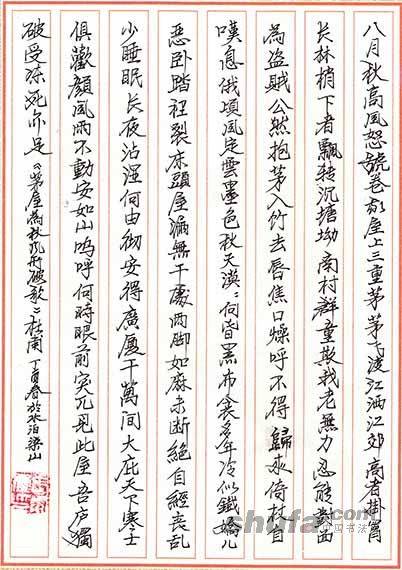 八月秋高風怒號卷我屋上三重茅茅飞渡江洒江郊高者掛罥
长林梢下者飄转沉塘坳南村群童欺我老無力忍能對面
為盗賊公然抱茅入竹去唇焦口燥呼不得歸来倚杖自
嘆息俄頃風定雲墨色秋天漠〻向昏黑布衾多年冷似鐵嬌儿
恶卧踏裡裂床頭屋漏無干處雨脚如麻未断絕自經丧乱
少睡眠长夜沾湿何由彻安得廣厦千萬间大庇天下寒士
俱歡颜風雨不動安如山呜呼何時眼前突兀见此屋吾庐獨
破受冻死亦足《茅屋為秋风所破歌》杜甫 丁酉春於水泊梁山